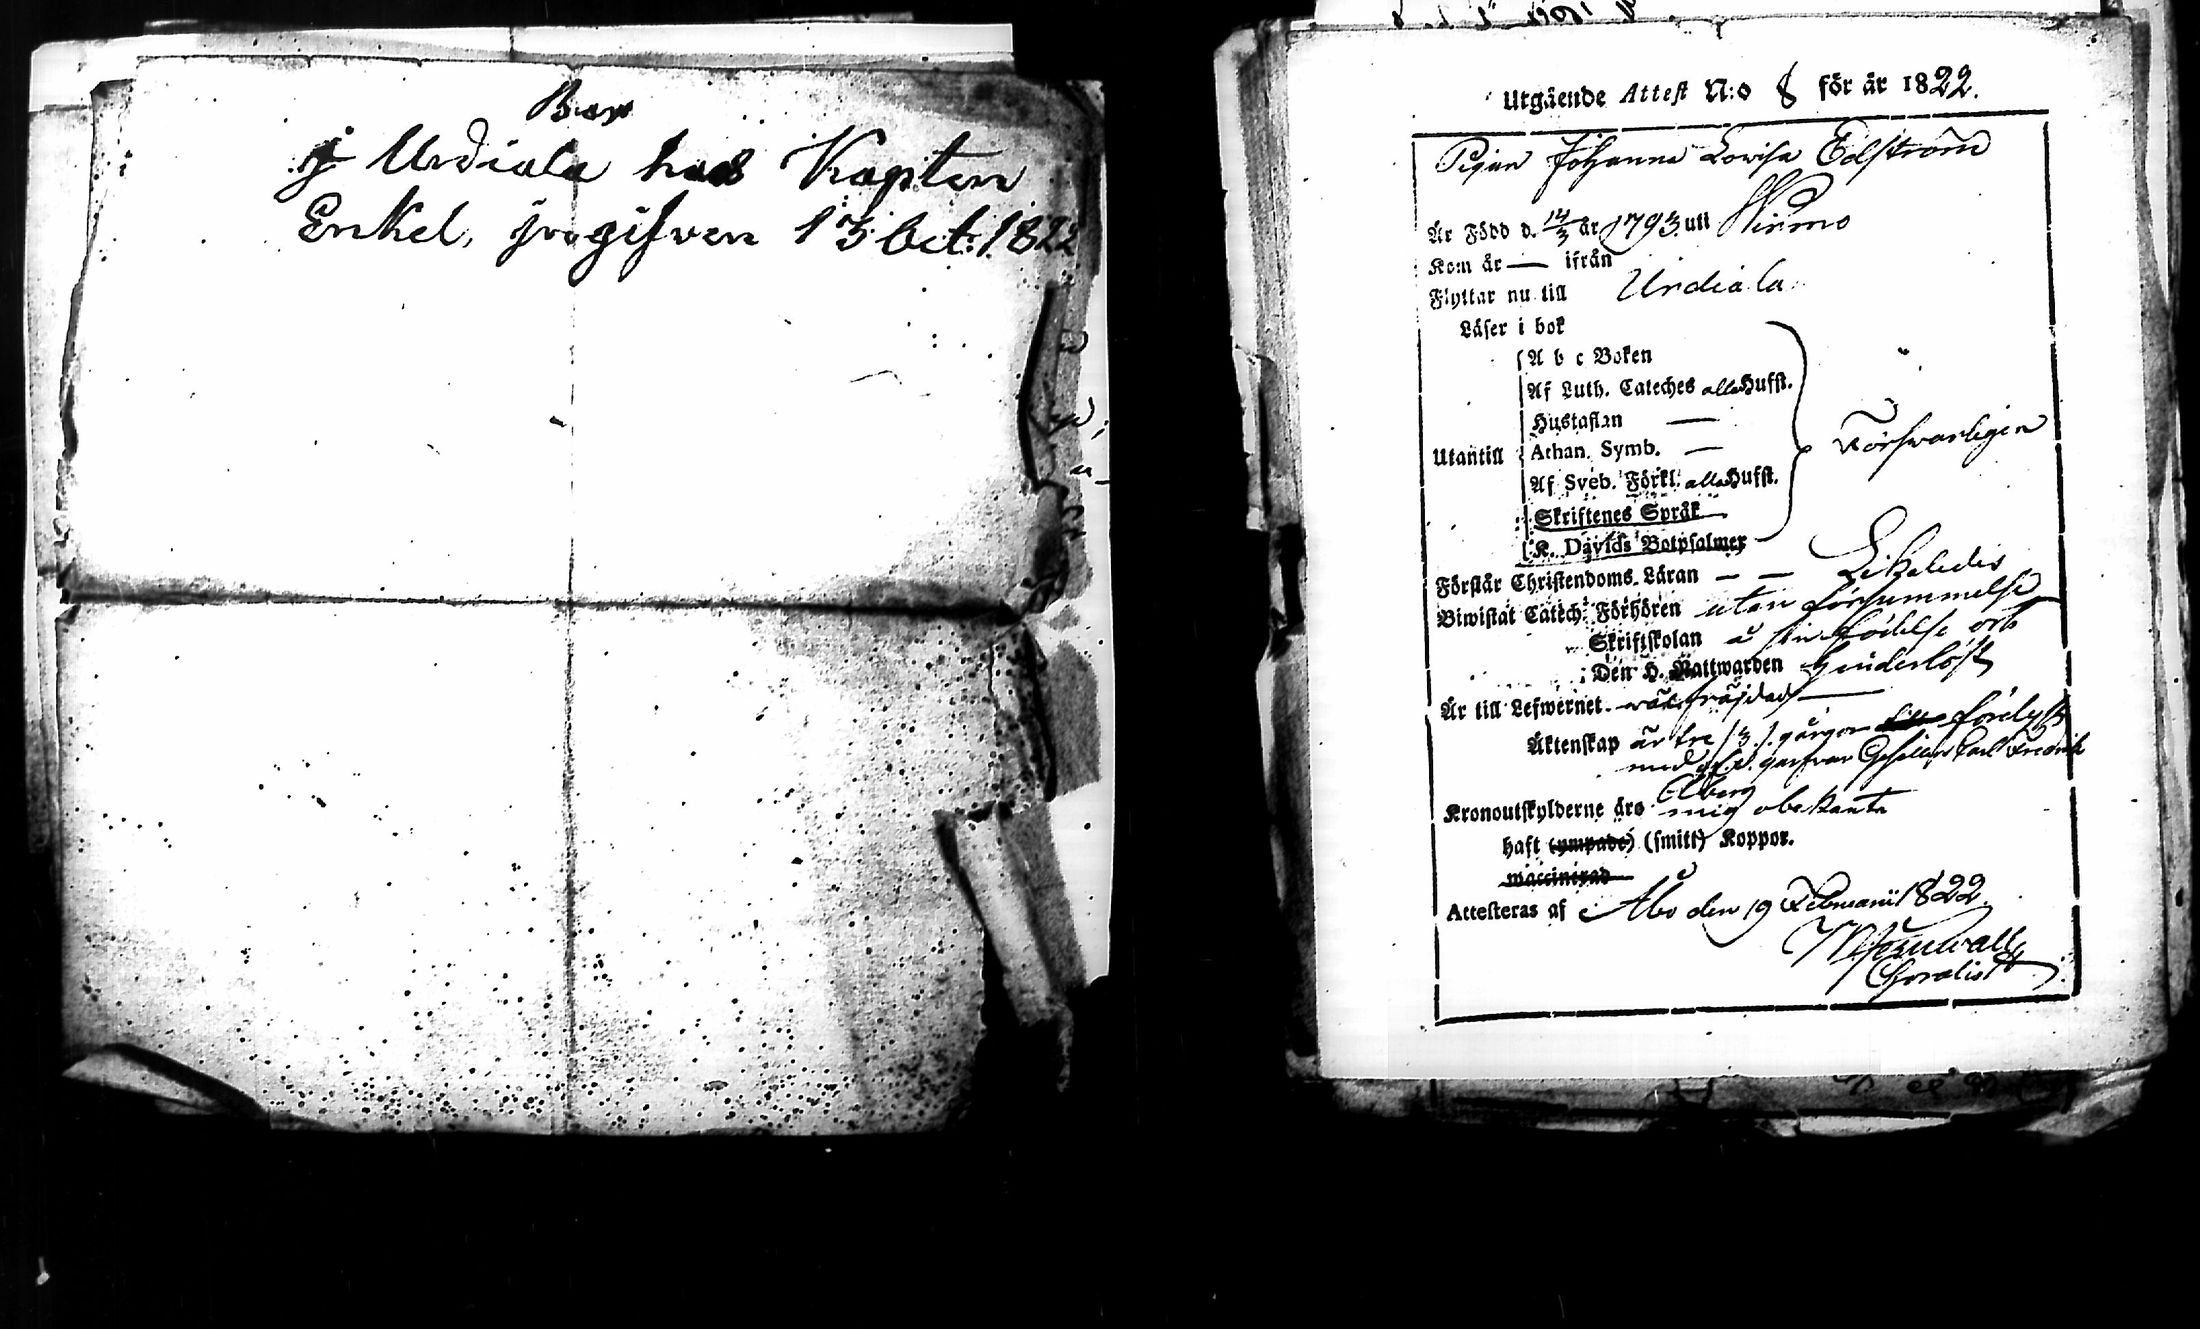 Bor
i Urdiala hos Kapten
Enkel, ingifven 13 Oct: 1822
Utgående Attest N:o 8 för år 1822.
Pigan Johanna Lovisa Edström
Är Född d. 14/3 år 1793 uti Wirmo
Kom år — ifrån
Flyttar nu till Urdiala
Läser i bok
A b c Boken
Af Luth. Cateches alla Hufst.
Hustaflan —
Utantill Athan. Symb. —
Försvarligen
Af Sveb. Förkl. alla Hufst.
Skriftenes Språk
K. Davids Botpsalmer
Förstår Christendoms Läran — — Likaledes
Biwistat Catech. Förhören utan försummelse
Skriftskolan å sin födelse ort
Den H. Nattwarden hinderlöst
Är till Lefwernet väl fräjdad —
Äktenskap är tre /3/ gånger förlyst
med garfvar Gesellen Carl Fredrik
Elberg
Kronoutskylderne äro mig obekante
haft (ympade) (smitt) Koppor.
waccinerad
Attesteras af Åbo den 19 Februarii 1822.